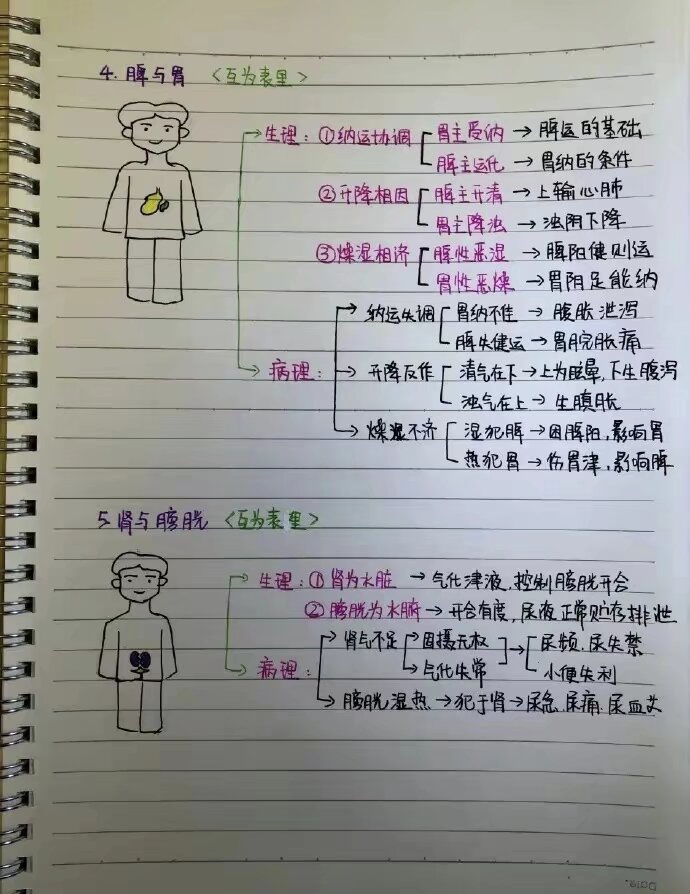 4. 脾与胃 〈互为表里〉
生理: ①纳运协调 胃主受纳 → 脾运的基础
脾主运化 → 胃纳的条件
②升降相因 脾主升清 → 上输心肺
胃主降浊 → 浊阴下降
③燥湿相济 脾性恶湿 → 脾阳健则运
胃性恶燥 → 胃阴足能纳
纳运失调 胃纳不佳 → 腹胀 泄泻
脾失健运 → 胃脘胀痛
病理: 升降反作 清气在下 → 上为眩晕,下生腹泻
浊气在上 → 生膜胀
燥湿不济 湿犯脾 → 困脾阳,影响胃
热犯胃 → 伤胃津,影响脾
5. 肾与膀胱 〈互为表里〉
生理: ①肾为水脏 → 气化津液,控制膀胱开合
②膀胱为水腑 → 开合有度,尿液正常贮存排泄
肾气不足 固摄无权 → 尿频、尿失禁
病理: 气化失常 小便失利
膀胱湿热 → 犯于肾 → 尿急、尿痛、尿血
Date.